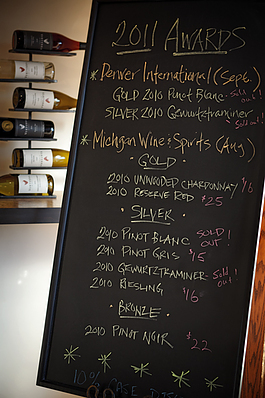 2011 AWARDS
* Denver International (Sept.)
GOLD 2010 PINOT BLANC - Sold out!
SILVER 2010 Gewurztraminer Sold out!
* Michigan Wine & Spirits (Aug)
· GOLD ·
2010 UNWOODED CHARDONNAY $16
2010 RESERVE RED $25
· SILVER ·
2010 PINOT BLANC SOLD OUT!
2010 PINOT GRIS $15
2010 GEWURTZTRAMINER - Sold out!
2010 RIESLING $16
· BRONZE ·
2010 PINOT NOIR $22
10% CASE DISC